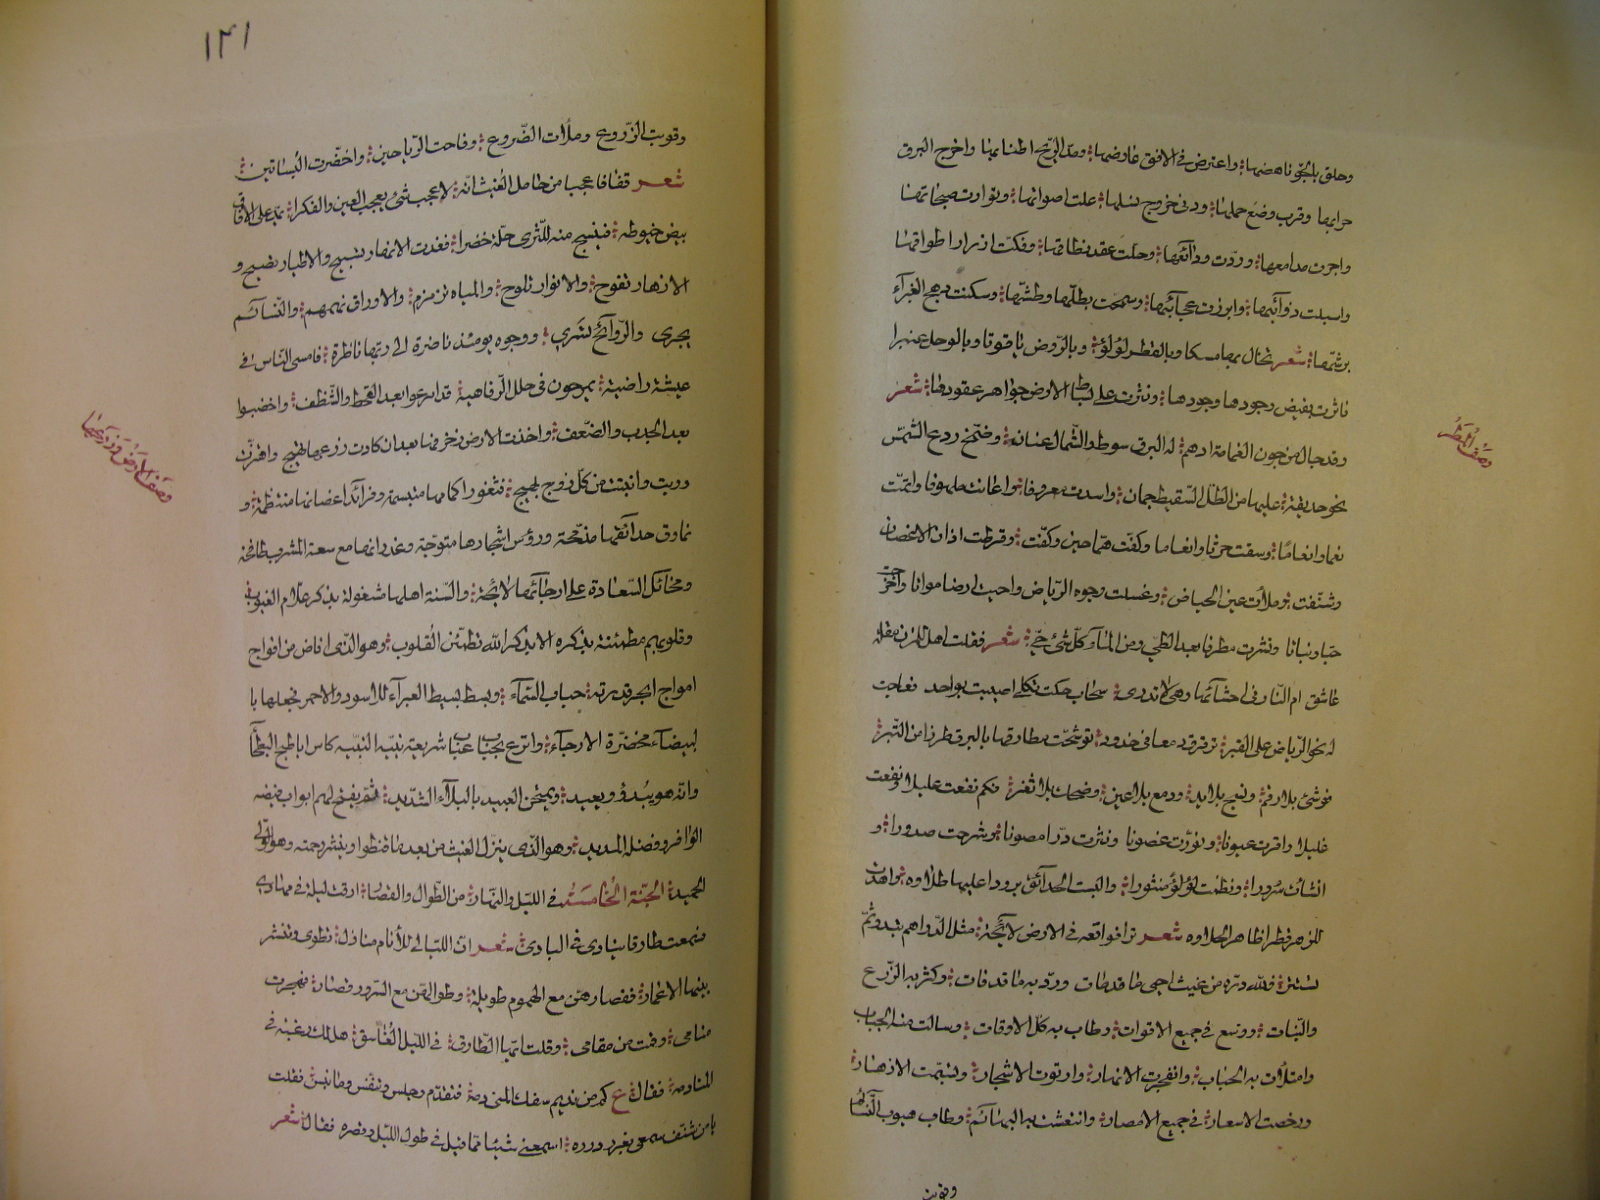 وحلق بالجو ناهضها واعترض في الافق عارضها ومد الريح اطنابها واخرج البرق
حرابها وقرب وضع حملها ودنى خروج نسلها علت اصواتها وتواترت صيحاتها
واجرت مدامعها وردت ودائعها وحلت عقد نطاقها وفكت ازرار اطواقها
واسبلت ذوائبها وابرزت عجائبها وسمحت بطلها وطشها وسكنت رهج الغبراء
برشها شعر تخال بها مسكا وبالقطر لؤلؤا وبالروض ياقوتا وبالوحل عنبرا
فاثرت بفيض وجودها وجودها ونثرت على بساط الارض جواهر عقودها شعر
وقد جال من جون الغمامة ادهم له البرق سوط والشمال عنان وضمخ ردع الشمس
نحو حديقة عليها من الطل السقيط جمان واسدت معروفا واغاثت ملهوفا واتمت
نعما وانعاما وسقت حرثا وانعاما وكفت هما حين وكفت وقرطت اذان الاغصان
وشنفت وملأت عين الحياض وغسلت وجوه الرياض واحيت ارضا مواتا واخرجت
حبا ونباتا ونشرت مطرفا بعد الطي ومن الماء كل شئ حي شعر فقلت اهل للمزن مقلة
عاشق ام النار في احشائها وهي لا تدري سحاب حكت ثكلى اصيبت بواحد فعاجت
له نحو الرياض على القبر ترقرق دمعا في خدود توشحت مطارفها بالبرق طرزا من التبر
فوشئ بلا رقم ونسج بلا يد ودمع بلا عين وضحك بلا ثغر فكم نفعت عليلا ونقعت
غليلا واقرت عيونا ونورت غصونا ونثرت درا مصونا وشرحت صدورا و
انشأت سرورا ونظمت لؤلؤ منثورا والبست الحدائق برودا عليها طلاوه واهدت
للزهر قطرا ظاهر الحلاوه شعر ترى فواقعه في الارض لائحة مثل الدراهم تبدو ثم
تستتر فلله دره من غيث احيى ما قد مات ورد به ما قد فات وكثر به الزرع
والنبات ووسع في جميع الاقوات وطاب به كل الاوقات وسالت منه الجباب
وامتلأت به الحباب وانفجرت الانهار وارتوت الاشجار وتبسمت الازهار
ورخصت الاسعار في جميع الامصار وانتعشت به البهائم وطاب هبوب النسائم
وقويت
وصف المطر
١٣١
وقويت الزروع وملأت الضروع وفاحت الرياحين واخضرت البساتين
شعر قفا فاعجبا من حامل الغيث انه لاعجب شئ يعجب العين والفكرا يمد على الافاق
بيض خيوطه فينسج منه للثرى حلة خضرا فغدت الانهار تسيح والاطيار تصيح و
الازهار تفوح والانوار تلوح والمياه تزمزم والاوراق تهمهم والنسائم
يجرى والروائح تسري ووجوه يومئذ ناضرة الى ربها ناظرة فامسى الناس في
عيشة راضية يمرحون في حلل الرفاهية قد امرعوا بعد القحط والشظف واخصبوا
بعد الجدب والضعف واخذت الارض زخرفها بعد ان كادت زروعها تهيج واهتزت
وربت وانبتت من كل زوج بهيج فثغور اكمامها متبسمة وفرائد اغصانها منتظمة و
نمارق حدائقها مفتحة ورؤس اشجارها متوجة وغدرانها مع سعة المشرب طافحة
ومخائل السعادة على ارجائها لائحة والسنة اهلها مشغولة بذكر علام الغيوب
وقلوبهم مطمئنة بذكره الا بذكر الله تطمئن القلوب وهو الذي افاض من افواج
امواج ابحر قدرته حباب السماء وبسط بسيط الغبراء للاسود والاحمر فجعلها با
لبيضاء مخضرة الارجاء واترع بحباب عباب شريعة نبيه النبيه كاس اباطح البطحاء
وانه هو يبدؤ ويعيد ويمتحن العبيد بالبلاء الشديد ثم يفتح لهم ابواب فيضه
الوافر وفضله المديد وهو الذي ينزل الغيث من بعد ما قنطوا وينشر رحمته وهو الولي
الحميد الجنة الخامسة في الليل والنهار من الطوال والقصار ارقت ليلة في مهادي
فسمعت طارقا ينادي في البادي شعر ان الليالي للأنام منازل تطوى وتنشر
بينها الاعمار فقصارهن مع الهموم طويلة وطوالهن مع السرور قصار فهجرت
منامي وقمت من مقامي وقلت ايها الطارق في الليل الغاسق هل لك رغبة في
المنادمة فقال ع كم من نديم سفك المني دمه فتقدم وجلس وتنفس وطابت نفس فقلت
يا من شنف سمعي بغرر درره اسمعني شيئا مما قيل في طول الليل وقصره فقال شعر
وصف الارض وزروعها